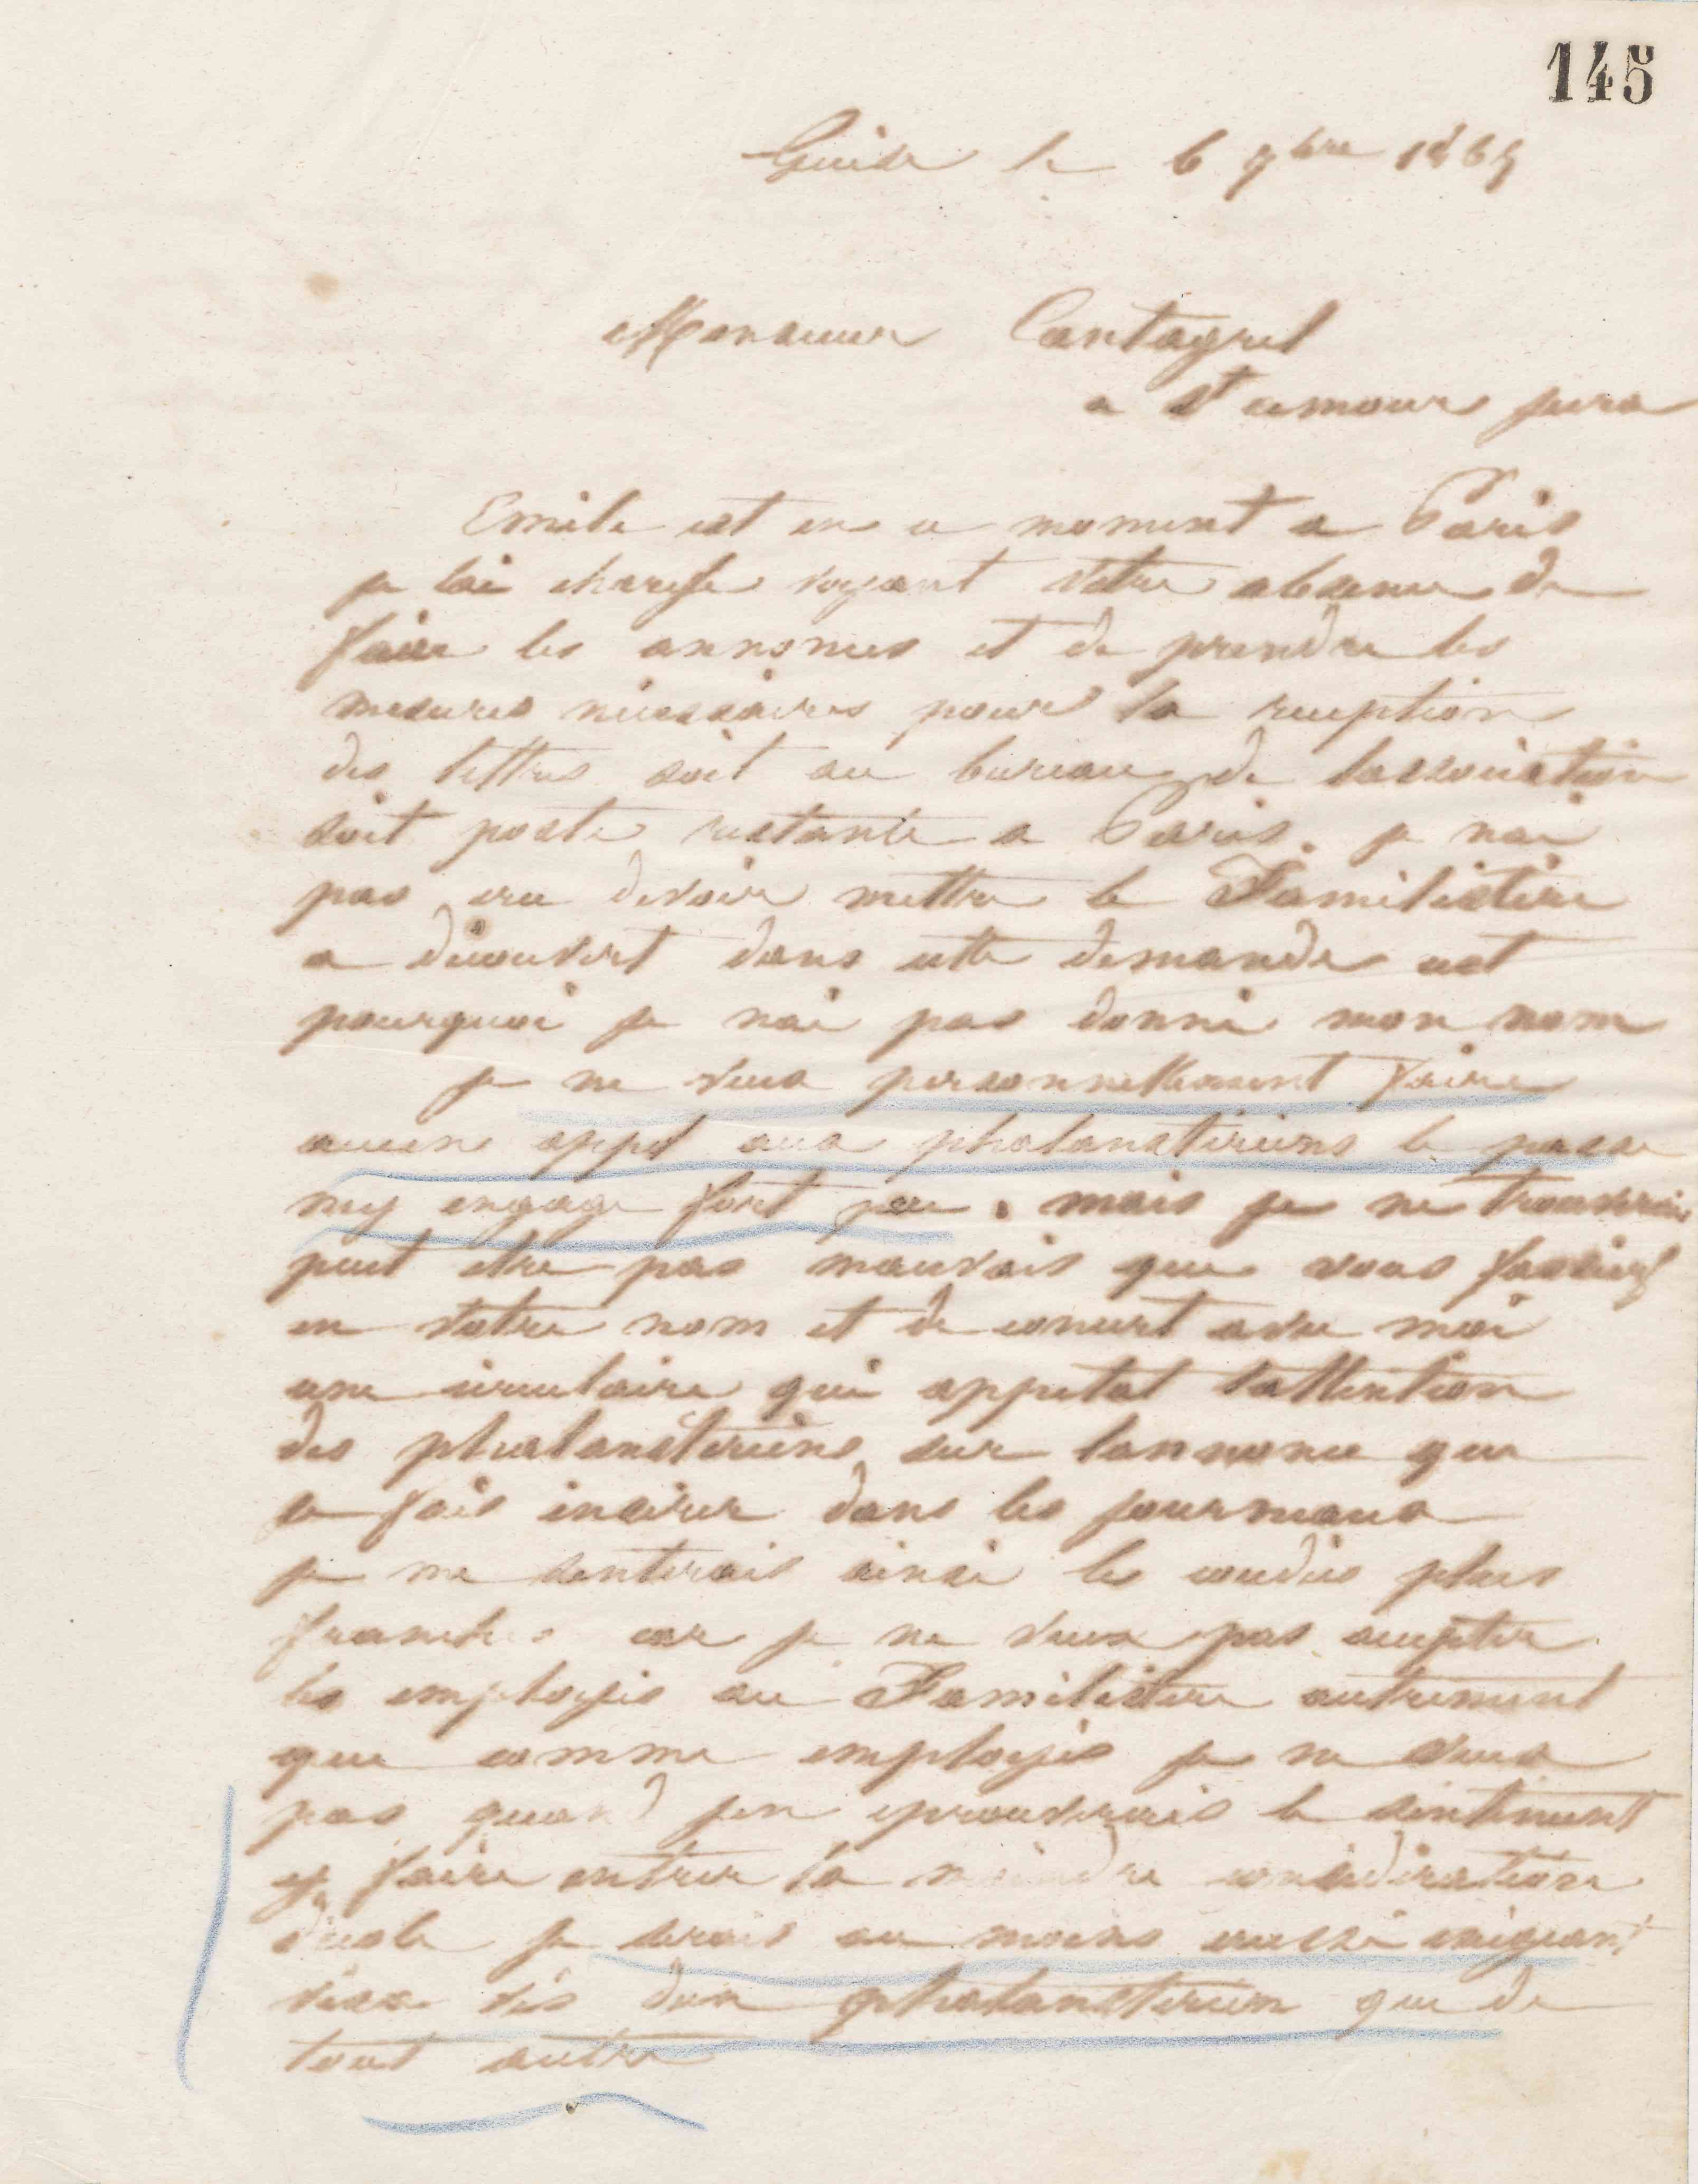 145
Guise le 6 9bre 1865
Monsieur Cantagrel
a St amour jura
Emile est en ce moment a Paris
je lai chargé voyant votre absence de
faire les annonces et de prendre les
mesures nécessaires pour la reception
des lettres soit au bureau de lassociation
soit poste restante a Paris. je nai
pas cru devoir mettre le Familistère
a découvert dans cette demande cest
pourquoi je nai pas donné mon nom
je ne veux personnellement faire
aucun appel aux phalanstériens le passé
my engage fort peu. mais je ne trouverais
peut etre pas mauvais que vous fassiez
en votre nom et de concert avec moi
une circulaire qui appelat lattention
des phalanstériens sur lannonce que
je fais insérer dans les journaux
je me sentirais ainsi les coudées plus
franches car je ne veux pas accepter
les employés au Familistère autrement
que comme employés je ne veux
pas quand jen eprouverais le sentiment
y faire entrer la moindre considération
décole je serais au moins aussi exigeant
visa vis dun phalanstérien que de
tout autre